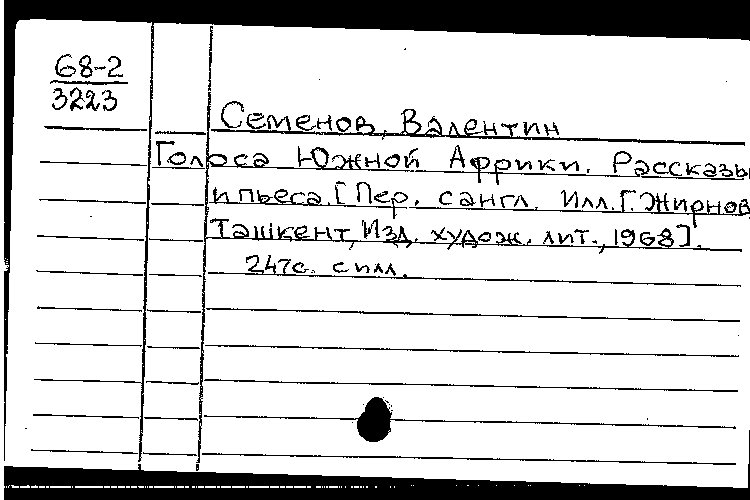 68-2
3223
Семенов, Валентин
Голоса Южной Африки. Рассказы
и пьеса. [Пер. с англ. Илл. Г. Жирнов
Ташкент, Изд. худож. лит., 1968].
247с. с илл.